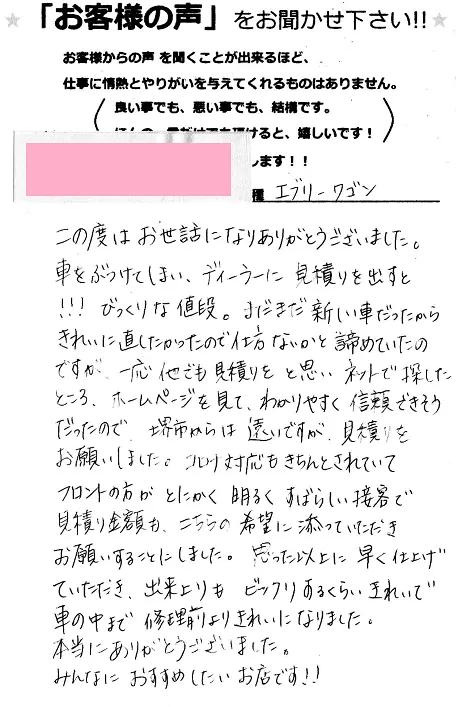 「お客様の声」をお聞かせ下さい!!
お客様からの声を聞くことが出来るほど、
仕事に情熱とやりがいを与えてくれるものはありません。
良い事でも、悪い事でも、結構です。
けると、嬉しいです！
します！！
種 エブリーワゴン
この度は お世話になりありがとうございました。
車をぶつけてしまい、ディーラーに 見積りを出すと
!!! びっくりな値段。まだまだ新しい車だったから
きれいに直したかったので仕方ないかと諦めていたの
ですが、一応他でも見積りを と思い ネットで探した
ところ、ホームページを見て、わかりやすく信頼できそう
だったので、堺市からは遠いですが、見積りを
お願いしました。コロナ対応もきちんとされていて
フロントの方が とにかく 明るく すばらしい接客で
見積り金額も、こちらの希望に添っていただき
お願いすることにしました。思った以上に早く仕上げ
ていただき、出来上りも ビックリするくらいきれいで
車の中まで 修理前よりきれいになりました。
本当にありがとうございました。
みんなに おすすめしたいお店です!!